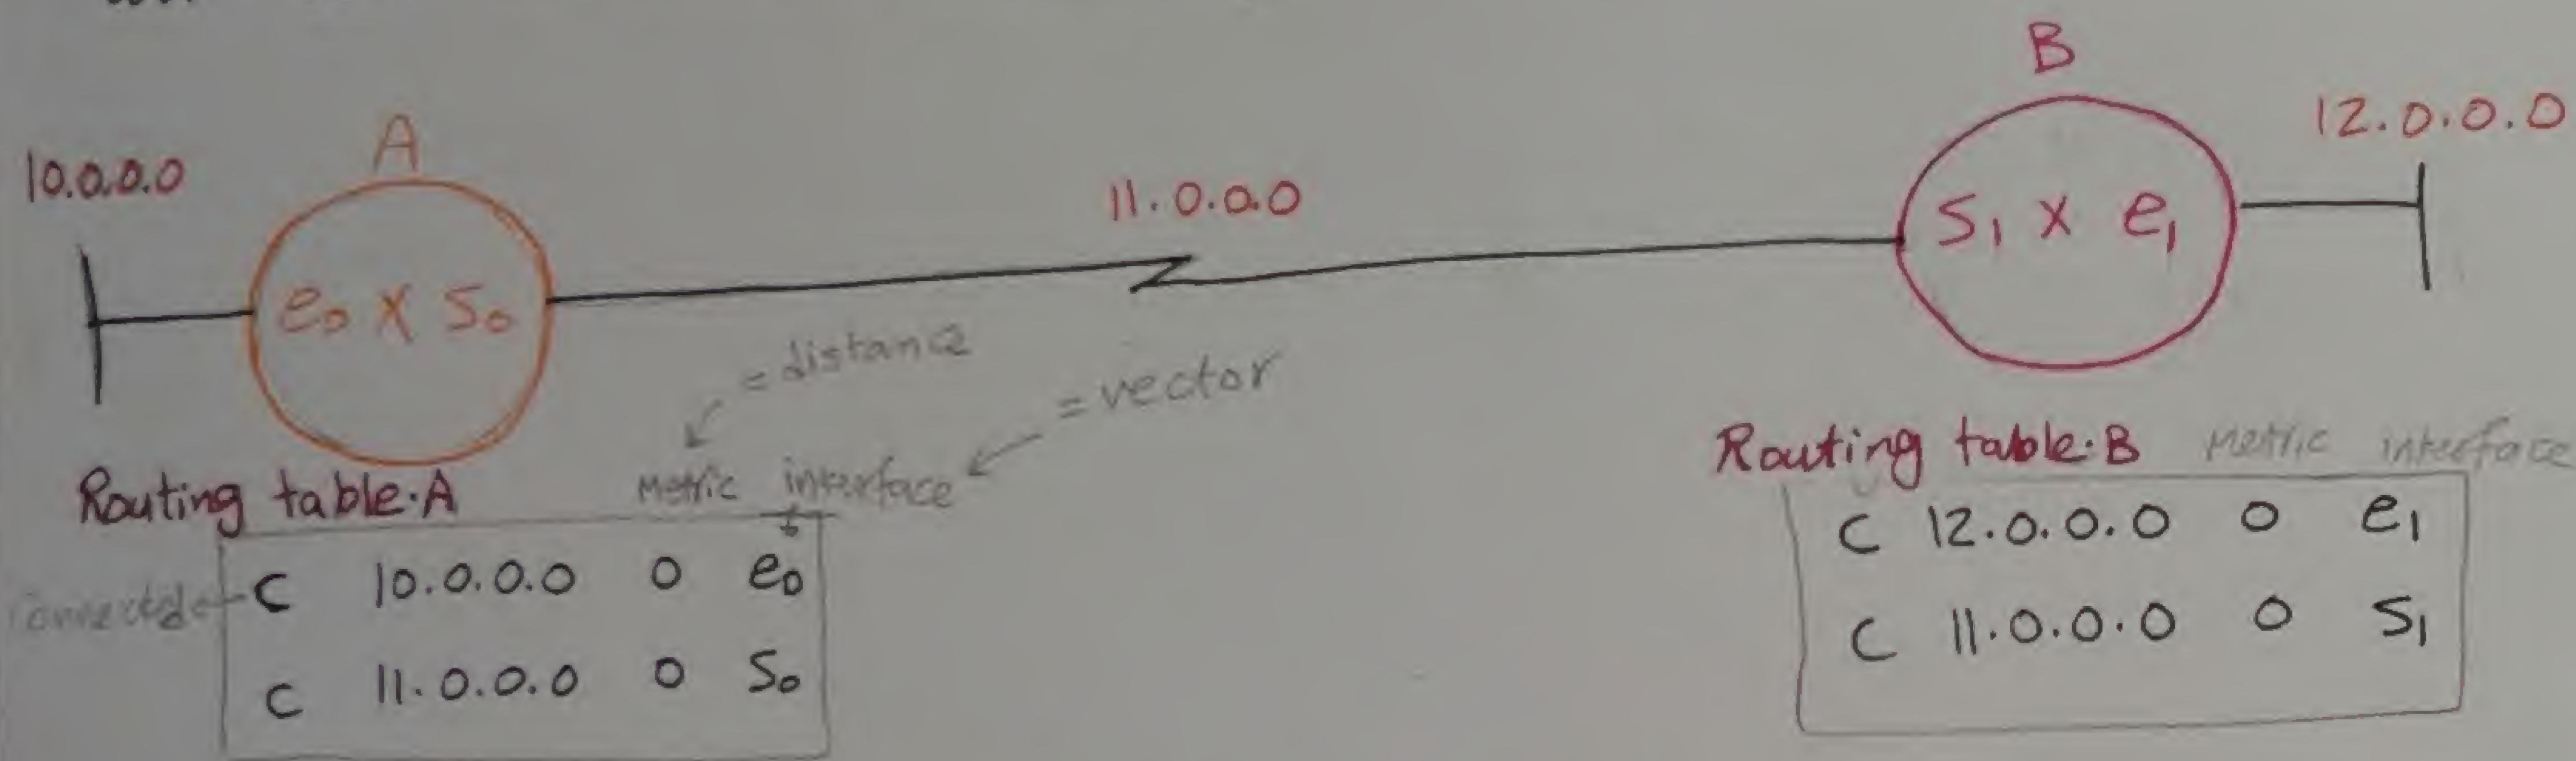 B
A
10.0.0.0
12.0.0.0
11.0.0.0
e0 X S0
S1 X e1
= distance
= vector
Routing table·A Metric interface
Connected C 10.0.0.0 0 e0
C 11.0.0.0 0 S0
Routing table·B Metric interface
C 12.0.0.0 0 e1
C 11.0.0.0 0 S1